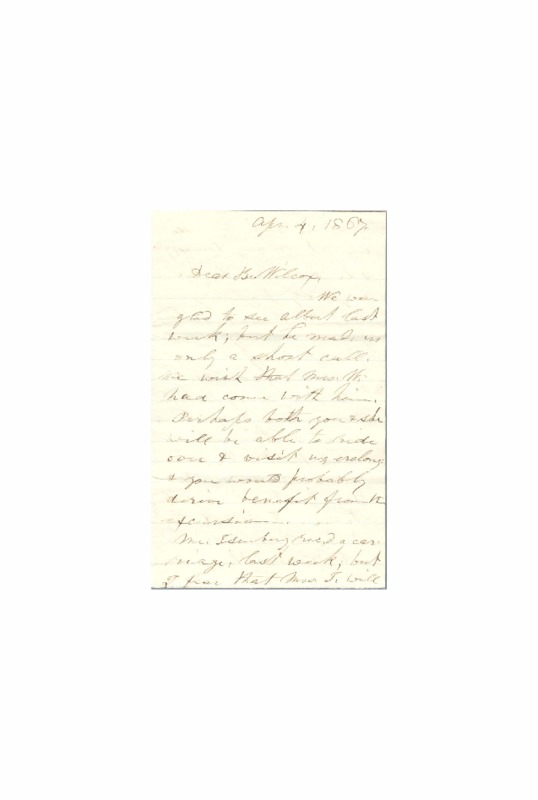 Apr. 4, 1867
Dear Br. Wilcox,
We were
glad to see Albert last
week; but he made us
only a short call.
We wish that Mrs. W.
had come with him.
Perhaps both you & she
will be able to ride
over & visit us erelong
& you would probably
derive benefit from the
excursion.
Mr. Isenberg rec,d a car
riage, last week, but
I fear that Mrs I. will